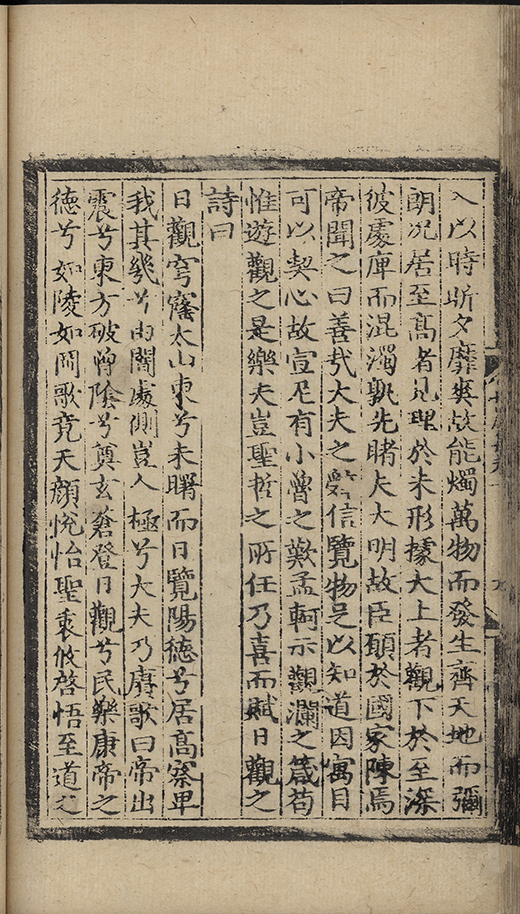 入以時昕夕靡爽故能燭萬物而發生齊天地而彌
朗况居至髙者見理於未形據大上者觀下於至深
彼處庳而混濁孰先睹夫大明故臣願於國家陳焉
帝聞之曰善哉大夫之辭信覽物足以知道因寓目
可以契心故宣尼有小魯之歎孟軻示觀瀾之箴苟
惟遊觀之是樂夫豈聖哲之所任乃喜而賦日觀之
詩曰
日觀穹窿太山東兮未曙而日覽陽徳兮居髙察卑
我其幾兮由闇處側豈人極兮大夫乃賡歌曰帝出
震兮東方破曾陰兮奠玄蒼登日觀兮民樂康帝之
徳兮如陵如岡歌竟天顔悅怡聖衷攸啓悟至道之